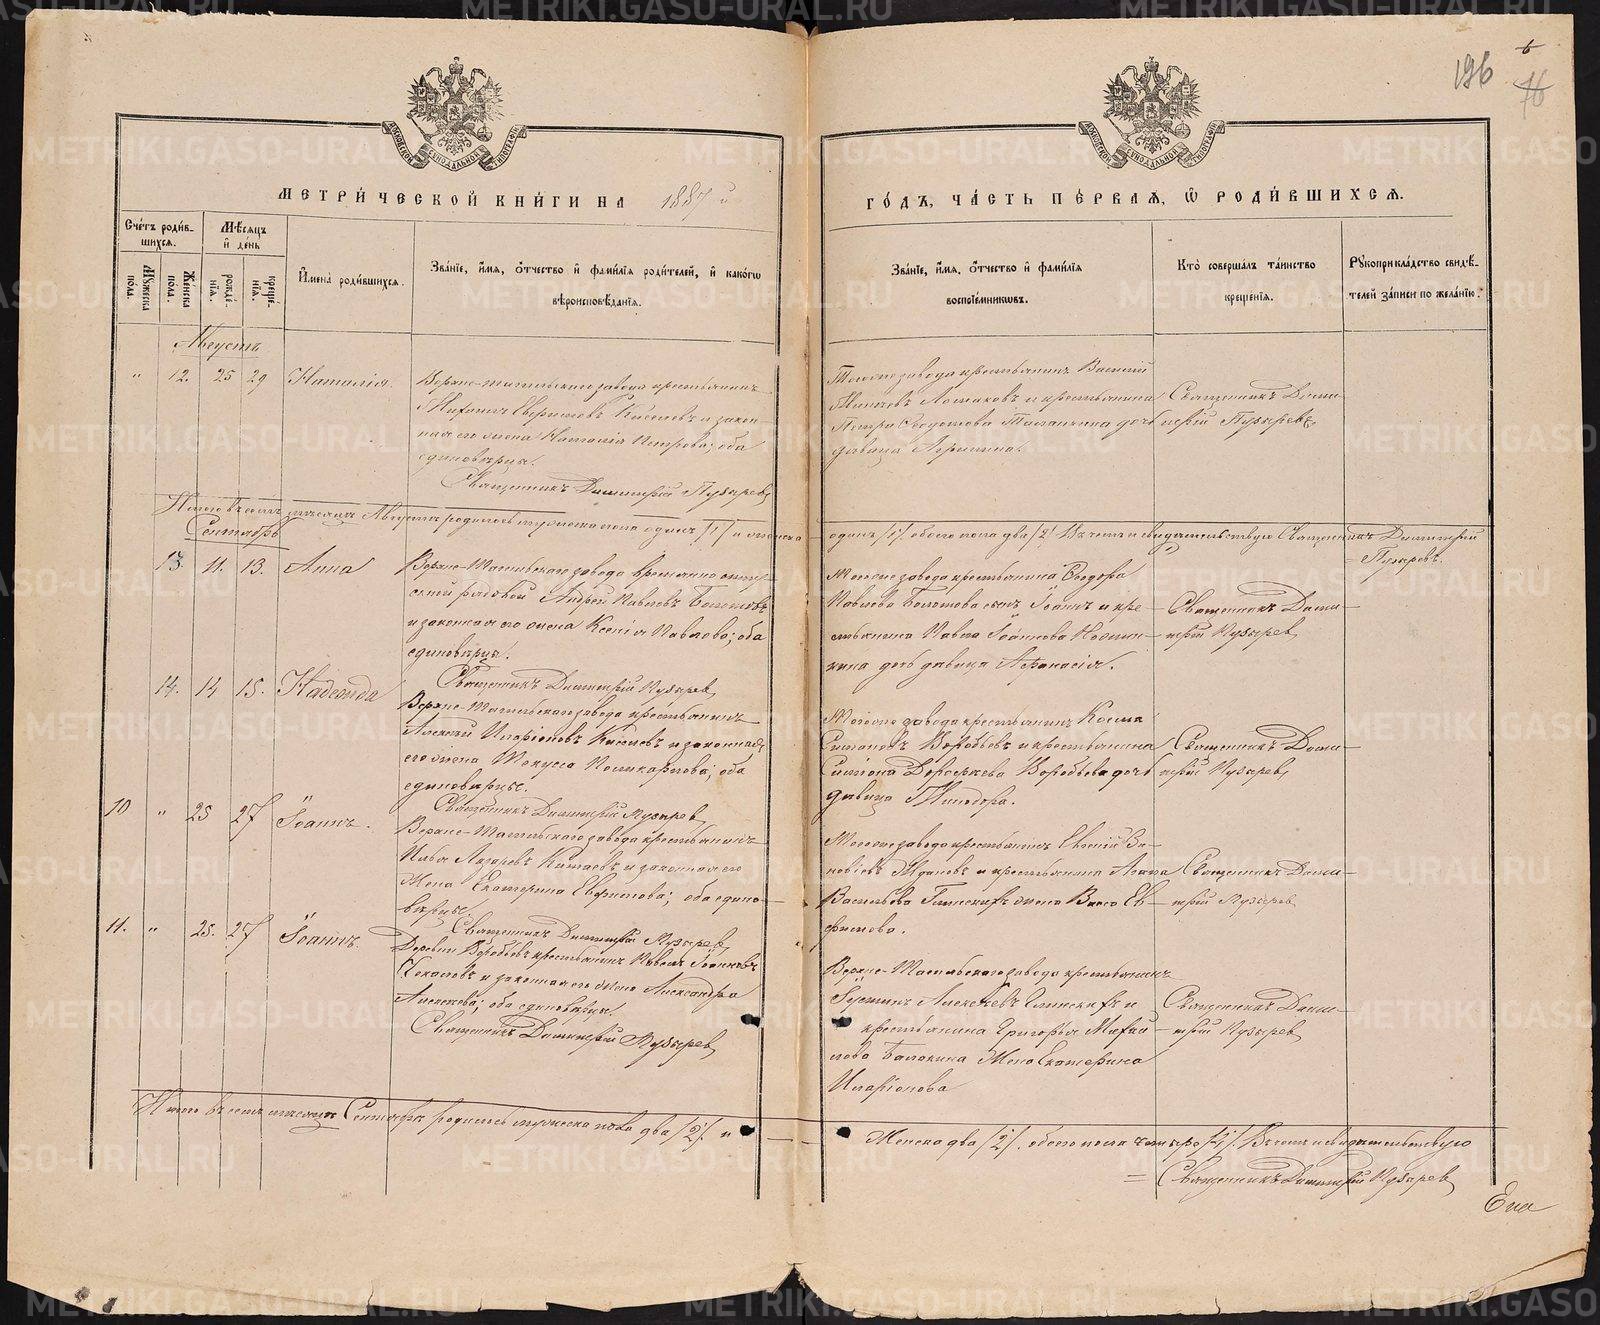 196
6
76
МЕТРИ́ЧЕСКОЙ КНИ́ГИ НА 1887 й
ГО́ДЪ, ЧА́СТЬ ПЕ́РВАЯ, Ѡ РОДИ́ВШИХСЯ.
Сче́тъ роди́в-
шихся.
Мѣ́сяцъ
и де́нь
Му́жеска
пола.
Же́нска
пола.
рожде́-
нїя.
креще́-
нїя.
И̂мена̀ роди́вшихся.
Зва́нїе, и́мя, ѻ́тчество и фами́лїя роди́телей, и како́гѡ
вѣроисповѣ́данїя.
Зва́нїе, и́мя, ѻ́тчество и фами́лїя
воспрїе́мниковъ.
Кто̀ соверша́лъ та́инство
креще́нїя.
Рукоприкла́дство свидѣ́-
телей за́писи по жела́нїю.
Августъ
" 12. 25 29 Наталія.
Верхне-Тагильскаго завода крестьянинъ
Евфимовъ Киселевъ и закон-
ная его жена Наталія Петрова; оба
единоверцы.
Священникъ Димитрій Пузыревъ
Тогоже завода крестьянинъ Василій
Ломаковъ и крестьянина
Петра Ѳедотова дочь
девица Агрипина.
Священникъ Дими-
трій Пузыревъ
Итого въ семъ месяце Августе родилось мужеска пола одинъ /1/ и женска
одинъ /1/ обоего пола два /2/. Въ чемъ и свидетельствую Священникъ Димитрій
Пузыревъ.
Сентябрь
13. 11. 13. Анна
Верхне-Тагильскаго завода
рядовой Андрей Павловъ Болотовъ
и законная его жена Ксенія Павлова; оба
единоверцы.
Священникъ Димитрій Пузыревъ
Тогоже завода крестьянина Ѳеодора
Павлова Болотова сынъ Іоаннъ и кре-
стьянина Павла Іоаннова
дочь девица Аѳанасія.
Священникъ Дими-
трій Пузыревъ
14. 14 15. Надежда
Верхне-Тагильскаго завода крестьянинъ
Алексій Иларіоновъ Киселевъ и законная
его жена Поликарпова; оба
единоверцы.
Священникъ Димитрій Пузыревъ
Тогоже завода крестьянинъ Косма
Симоновъ Воробьевъ и крестьянина
Симеона Дороѳеева Воробьева дочь
девица
Священникъ Дими-
трій Пузыревъ
10 " 25 27 Іоаннъ.
Верхне-Тагильскаго завода крестьянинъ
Илья Лазаревъ Китаевъ и законная его
жена Екатерина Евфимова; оба едино-
верцы.
Священникъ Димитрій Пузыревъ
Тогоже завода крестьянинъ Евгеній Зи-
новіевъ Ждановъ и крестьянина
Васильева жена Васса Ев-
фимова.
Священникъ Дими-
трій Пузыревъ
11. " 25. 27 Іоаннъ.
Деревни Воробьевой крестьянинъ Павелъ Іоанновъ
и законная его жена Александра
Алексеева; оба единоверцы.
Священникъ Димитрій Пузыревъ
Верхне-Тагильскаго завода крестьянинъ
Іустинъ Алексеевъ и
крестьянина Григорья Михай-
лова Балакина жена Екатерина
Иларіонова
Священникъ Дими-
трій Пузыревъ
Итого въ семъ месяце Сентябре родилось мужеска пола два /2/. и
женска два /2/. обоего пола четыре /4/. Въ чемъ и свидетельствую
= Священникъ Димитрій Пузыревъ